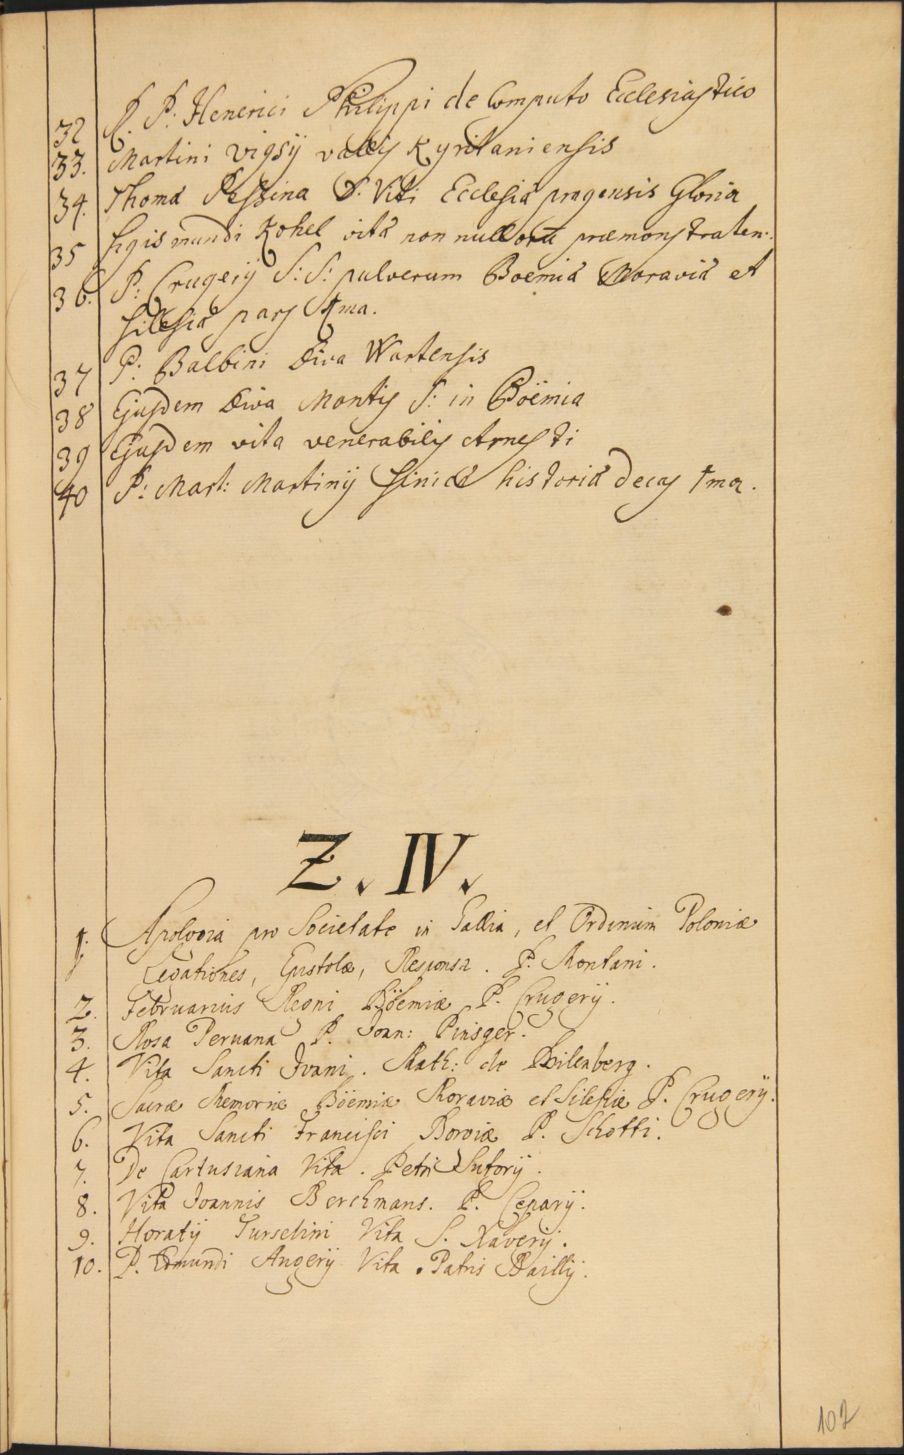 32 R. P. Henerici Philippi de Computo Ecclesiastico
33. Martini vigsÿ vallis Kyritaniensis
34. Thomæ Pessina S. Viti Ecclesiæ pragensis Gloria
35 Sigismundi Kohel vitæ non nullorū præmonstraten:
36. P. Crugerÿ S: S: pulverum Boemiæ Moraviæ et
Silesiæ pars 1ma.
37 P: Balbini Diva Wartensis
38 Ejusdem Diva Montis S: in Böemia
39 Ejusdem vita venerabilis Arnesti
40 P: Mart: Martinÿ Sinicæ historiæ Decas 1ma.
Z. IV.
1. Apologia pro Societate in Gallia, et Ordinum Poloniæ
Legationes, Epistolæ, Responsa. P. Montani.
2. Februarius Regni Böemiæ P. Crugerÿ.
3. Rosa Peruana P. Joan: Pinsger.
4. Vita Sancti Ivani. Math: de Bilenberg.
5. Sacræ Memoriæ Böemiæ Moraviæ et Silesiæ P. Crugerÿ.
6. Vita Sancti Francisci Borgiæ P. Schotti.
7. De Cartusiana Vita. Petri Sutorÿ.
8. Vita Joannis Berchmans. P. Ceparÿ.
9. Horatÿ Turselini Vita S. Xaverÿ.
10. P. Edmundi Augerÿ Vita. Patris Baillÿ.
107